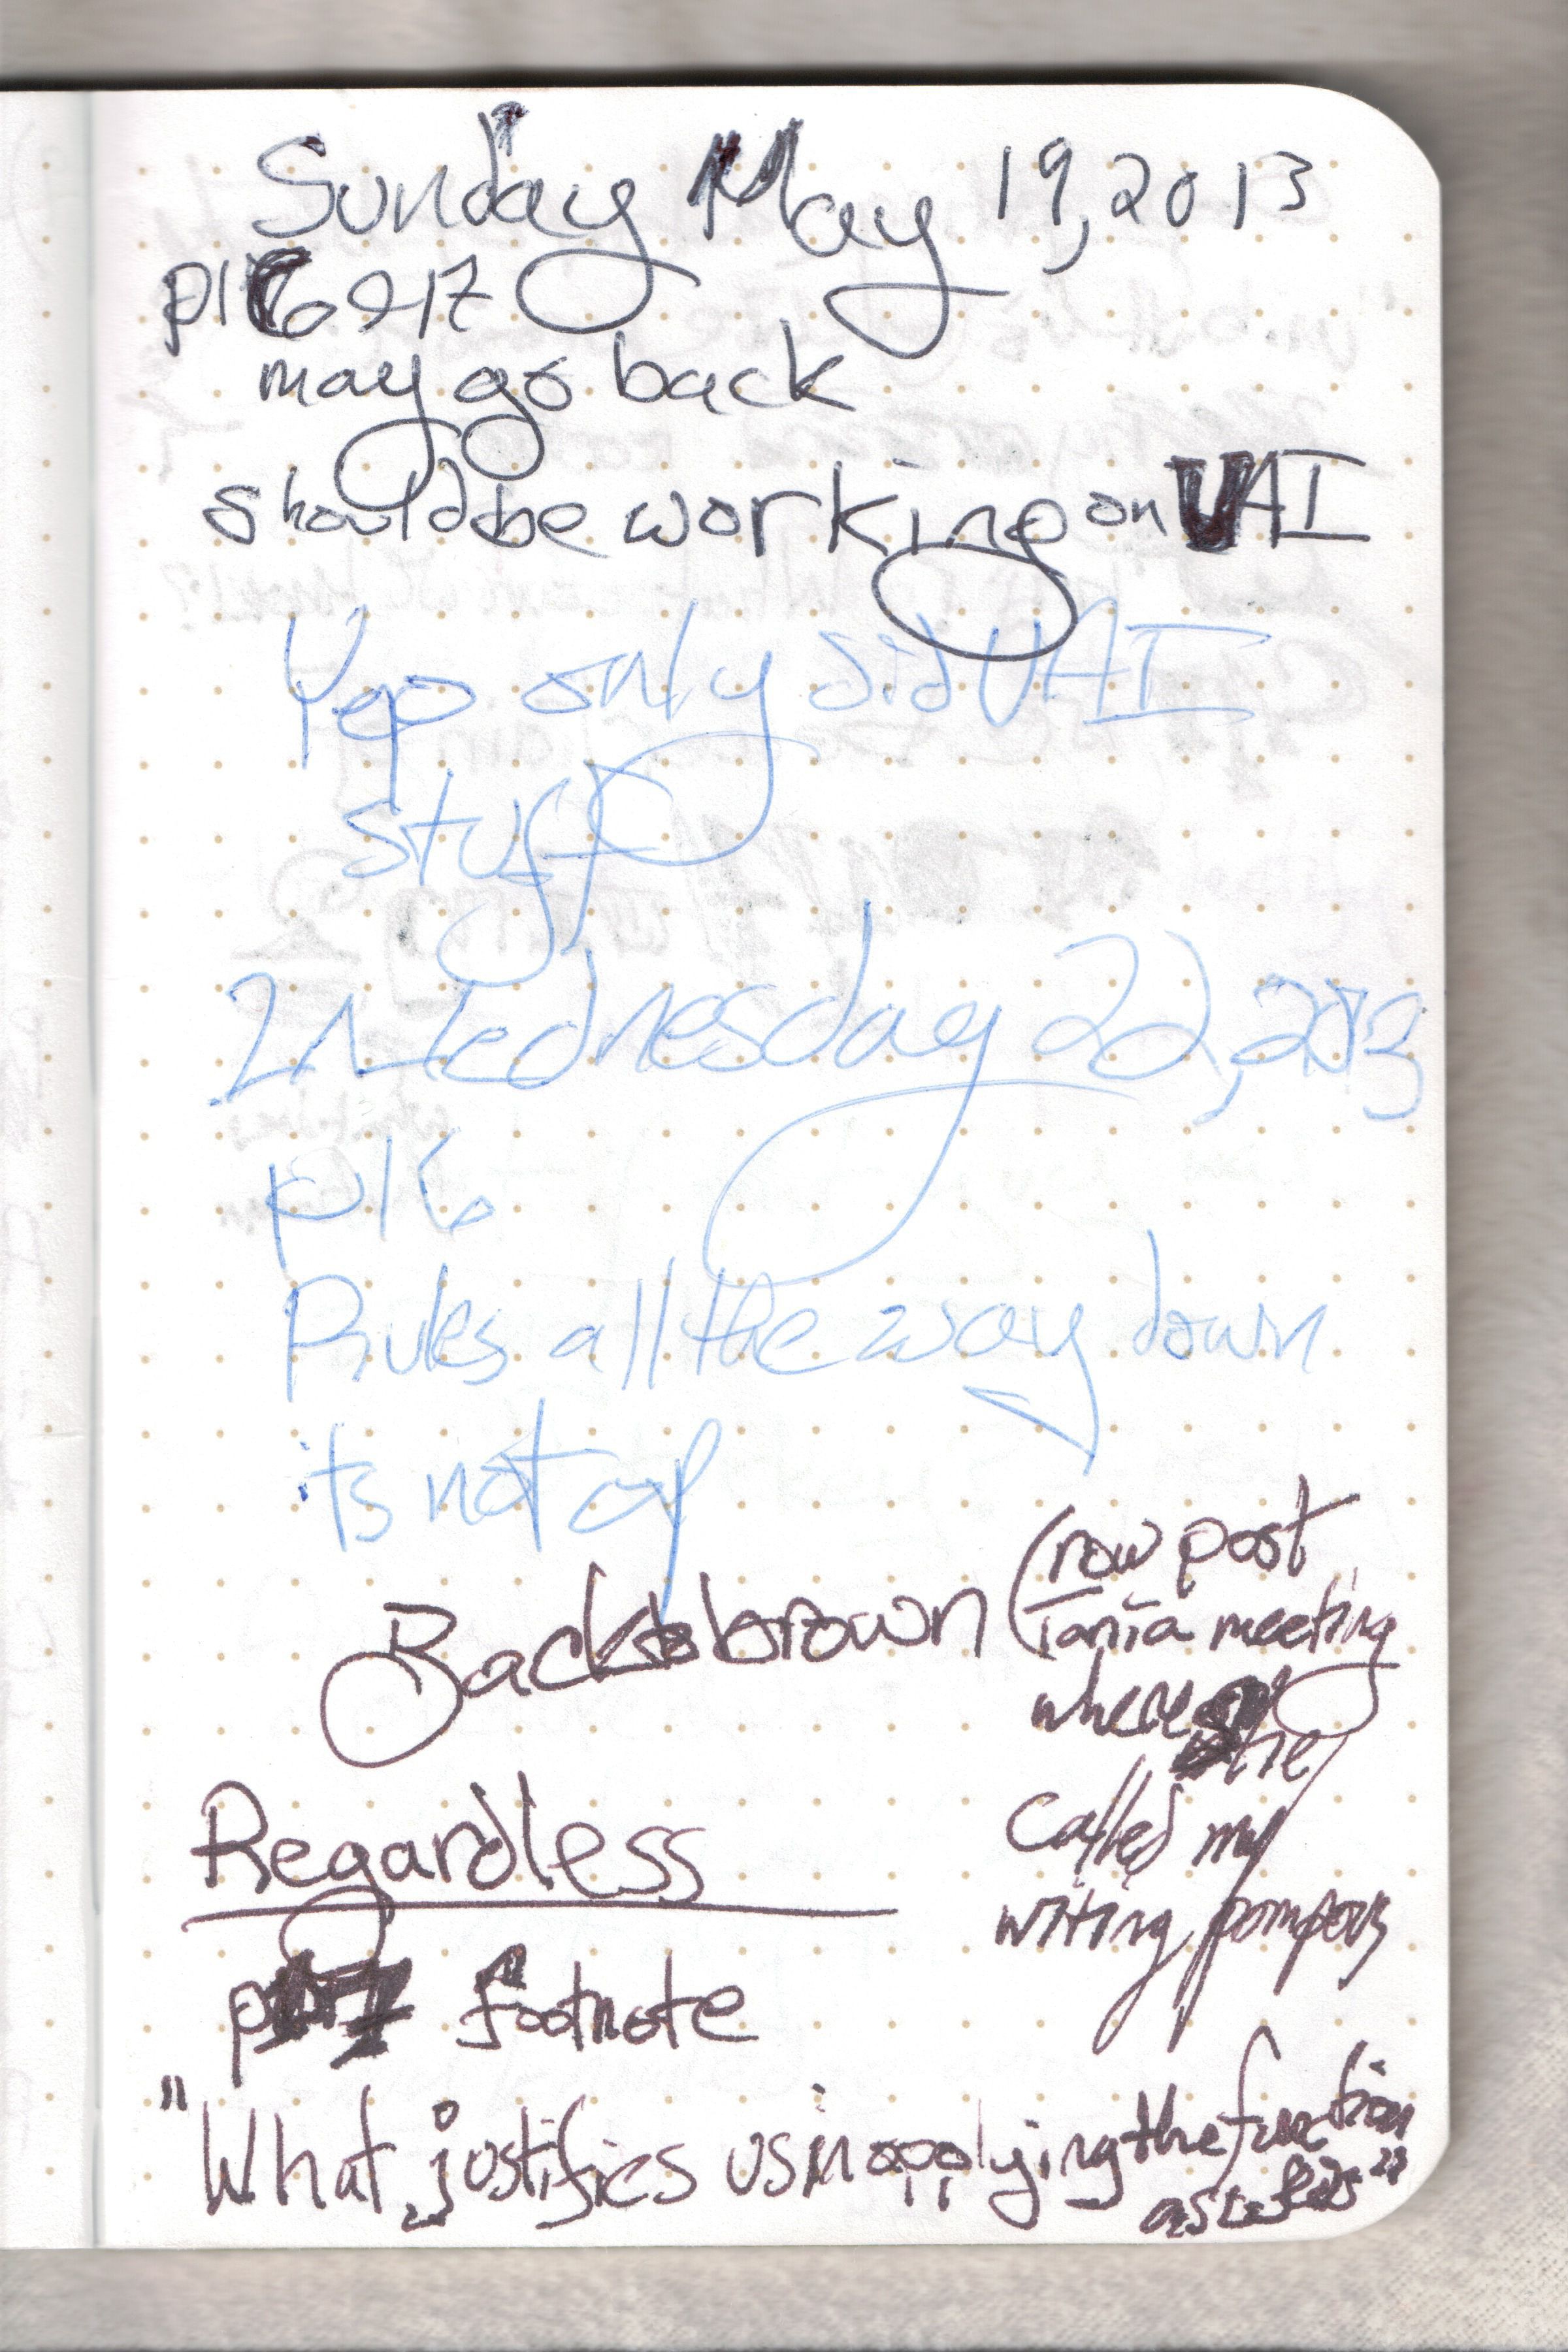 Sunday May 19, 2013
p16 & 17
may go back
should be working on UAI
Yep only did UAI
stuff
Wednesday 22, 2013
p16
Rules all the way down
its not of
Back to brown
(now post
Tania meeting
where she
called my
writing pompous
Regardless
p footnote
"What justifies us in applying the function
as it is"